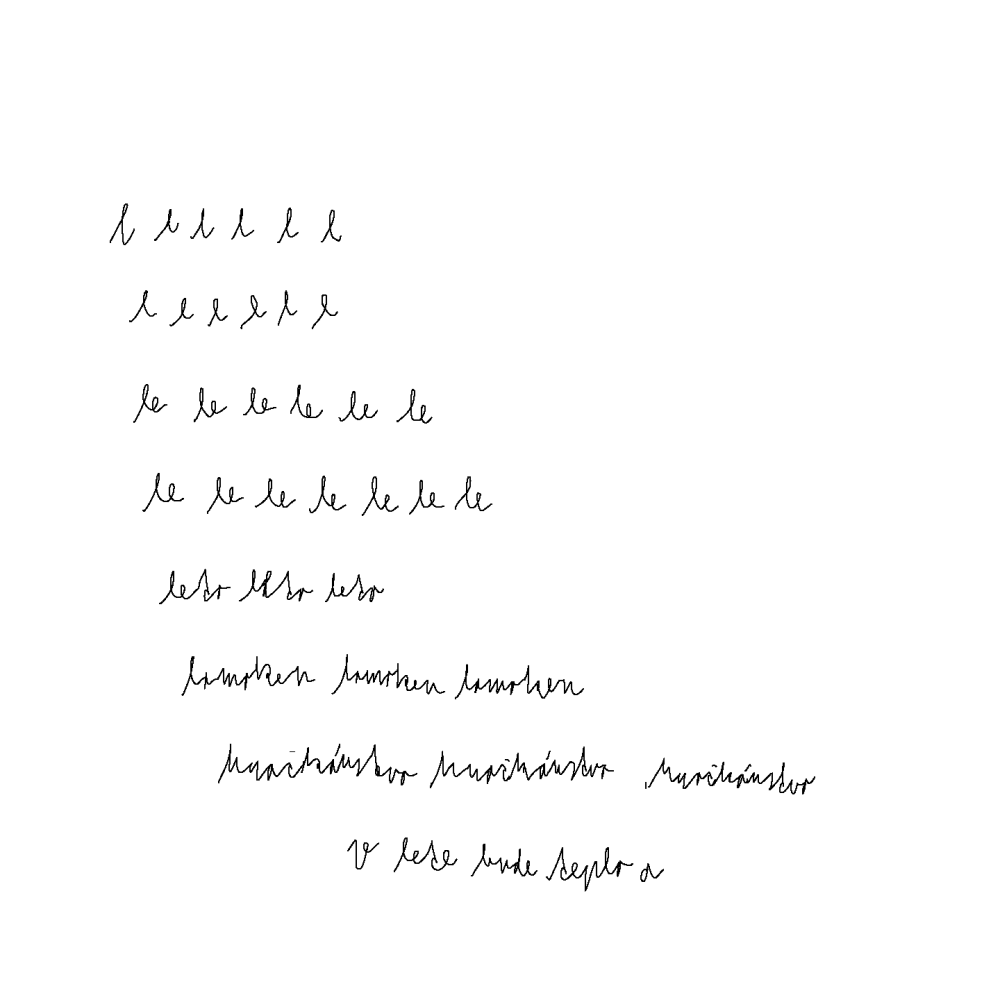 l l l l l l
l l l l l l
le le le le le le
le le le le le le le
leto leto leto
lomoken lomoken lomoken
hurikánstvo hurikánstvo hurikánstvo
V lete bude teplo a